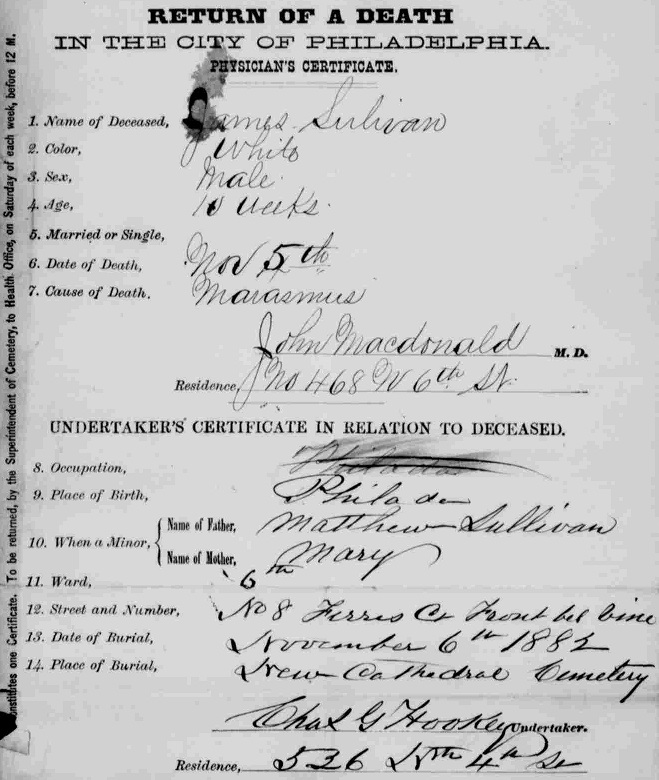 RETURN OF A DEATH
IN THE CITY OF PHILADELPHIA.
PHYSICIAN'S CERTIFICATE.
1. Name of Deceased, James Sulivan
2. Color, White
3. Sex, Male
4. Age, 10 weeks
5. Married or Single,
6. Date of Death, Nov 5th
7. Cause of Death. Marasmus
John Macdonald M. D.
Residence, No 468 N 6th St
UNDERTAKER'S CERTIFICATE IN RELATION TO DECEASED.
8. Occupation,
9. Place of Birth, Philada
10. When a Minor,
Name of Father, Matthew Sullivan
Name of Mother, Mary
11. Ward, 6th
12. Street and Number, No 8 Ferris Ct Front bel Vine
13. Date of Burial, November 6th 1882
14. Place of Burial, New Cathedral Cemetery
Chas G Hookey Undertaker.
Residence, 526 Nth 4th St
onstitutes one Certificate. To be returned, by the Superintendent of Cemetery, to Health Office, on Saturday of each week, before 12 M.